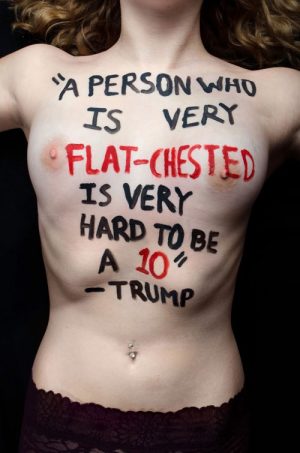 "A PERSON WHO
IS VERY
FLAT-CHESTED
IS VERY
HARD TO BE
A 10"
-TRUMP